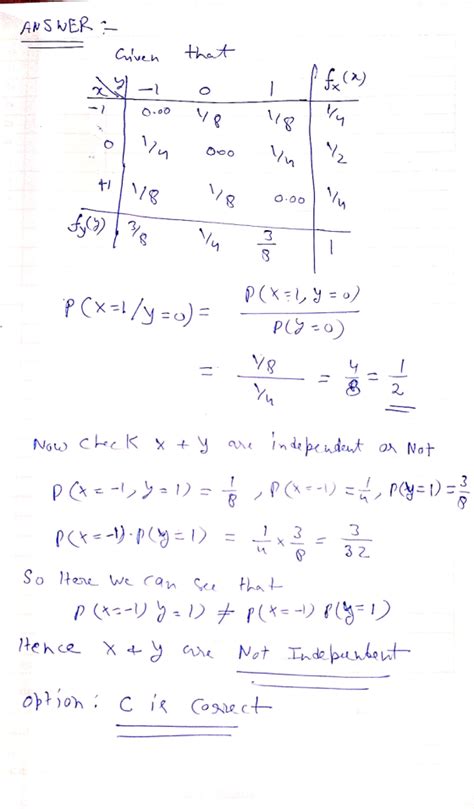 ANSWER :-
Given that
x y -1 0 1 fx(x)
-1 0.00 1/8 1/8 1/4
0 1/4 000 1/4 1/2
+1 1/8 1/8 0.00 1/4
fy(y) 3/8 1/4 3/8 1
P(X=1/y=0) = P(X=1, y=0) / P(y=0)
= 1/8 / 1/4 = 4/8 = 1/2
Now check x + y are independent or Not
P(X=-1, y=1) = 1/8 , P(X=-1) = 1/4, P(y=1) = 3/8
P(X=-1)·P(y=1) = 1/4 × 3/8 = 3/32
So Here we can see that
P(X=-1) y=1) ≠ P(X=-1) P(y=1)
Hence X + y are Not Independent
option : C is correct